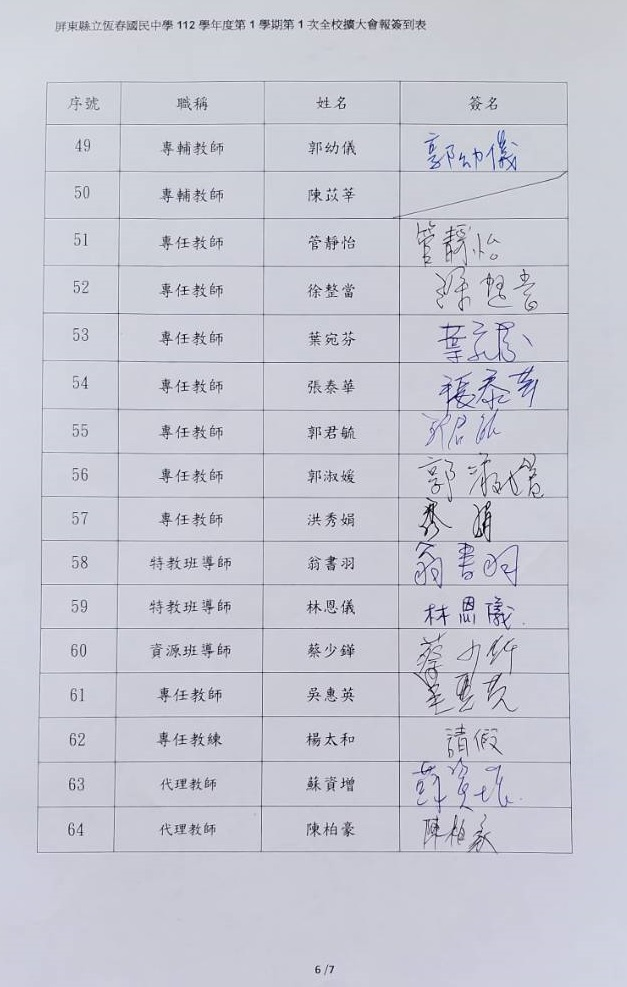 屏東縣立恆春國民中學 112 學年度第 1 學期第 1 次全校擴大會報簽到表
序號 職稱 姓名 簽名
49 專輔教師 郭幼儀 郭幼儀
50 專輔教師 陳苡莘
51 專任教師 管靜怡 管靜怡
52 專任教師 徐整當 徐整當
53 專任教師 葉宛芬 葉宛芬
54 專任教師 張泰華 張泰華
55 專任教師 郭君毓 郭君毓
56 專任教師 郭淑媛 郭淑媛
57 專任教師 洪秀娟 秀娟
58 特教班導師 翁書羽 翁書羽
59 特教班導師 林恩儀 林恩儀
60 資源班導師 蔡少鏵 蔡少
61 專任教師 吳惠英 吳惠英
62 專任教練 楊太和 請假
63 代理教師 蘇資增 蘇資增
64 代理教師 陳柏豪 陳柏豪
6 /7